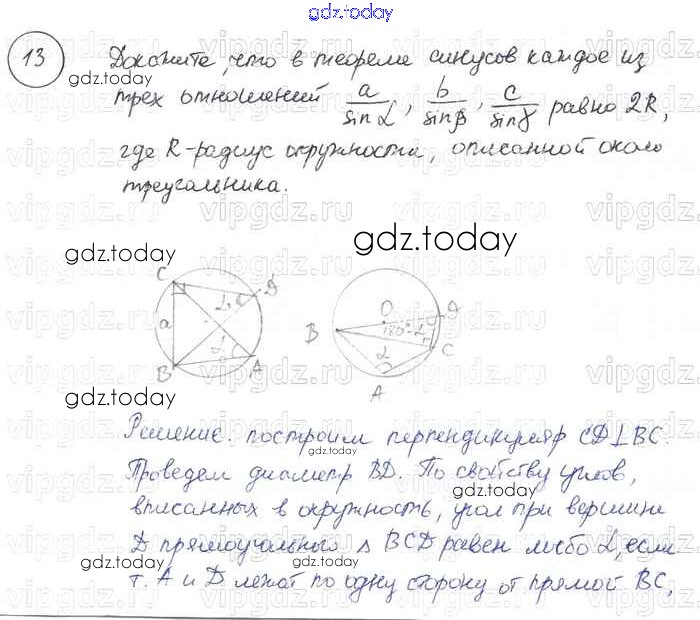 gdz.today
13
Докажите, что в теореме синусов каждое из
трех отношений a/sin α, b/sin β, c/sin γ равно 2R,
где R-радиус окружности, описанной около
треугольника.
gdz.today
gdz.today
gdz.today
C
D
α
a
α
B
A
O
D
B
180°-α
C
α
A
gdz.today
Решение. построим перпендикуляр CD⊥BC.
Проведем диаметр BD. По свойству углов,
вписанных в окружность, угол при вершине
D прямоугольного Δ BCD равен либо α, если
т. A и D лежат по одну сторону от прямой BC,
gdz.today
gdz.today
gdz.today
vipgdz.ru